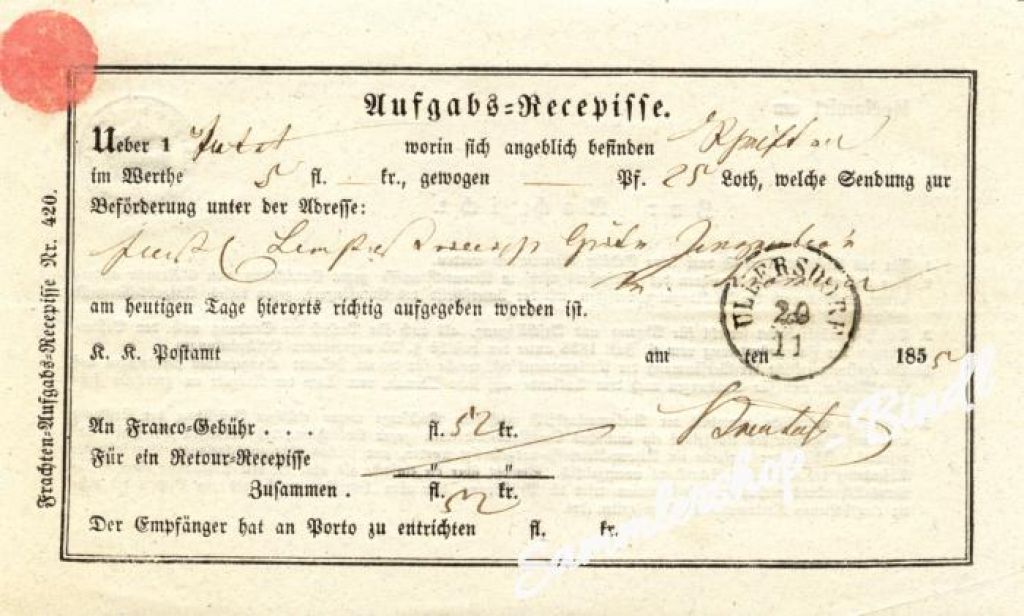 Aufgabs-Recepisse.
Ueber 1 worin sich angeblich befinden Schriften
im Werthe 5 fl. — kr., gewogen — Pf. 25 Loth, welche Sendung zur
Beförderung unter der Adresse:
am heutigen Tage hierorts richtig aufgegeben worden ist.
ULLERSDORF
20
11
K. K. Postamt am ten 1855
An Franco-Gebühr . . . fl. 52 kr.
Für ein Retour-Recepisse " "
Zusammen . fl. 52 kr.
Der Empfänger hat an Porto zu entrichten fl. kr.
Frachten-Aufgabs-Recepisse Nr. 420.
Sammlershop - Bindl